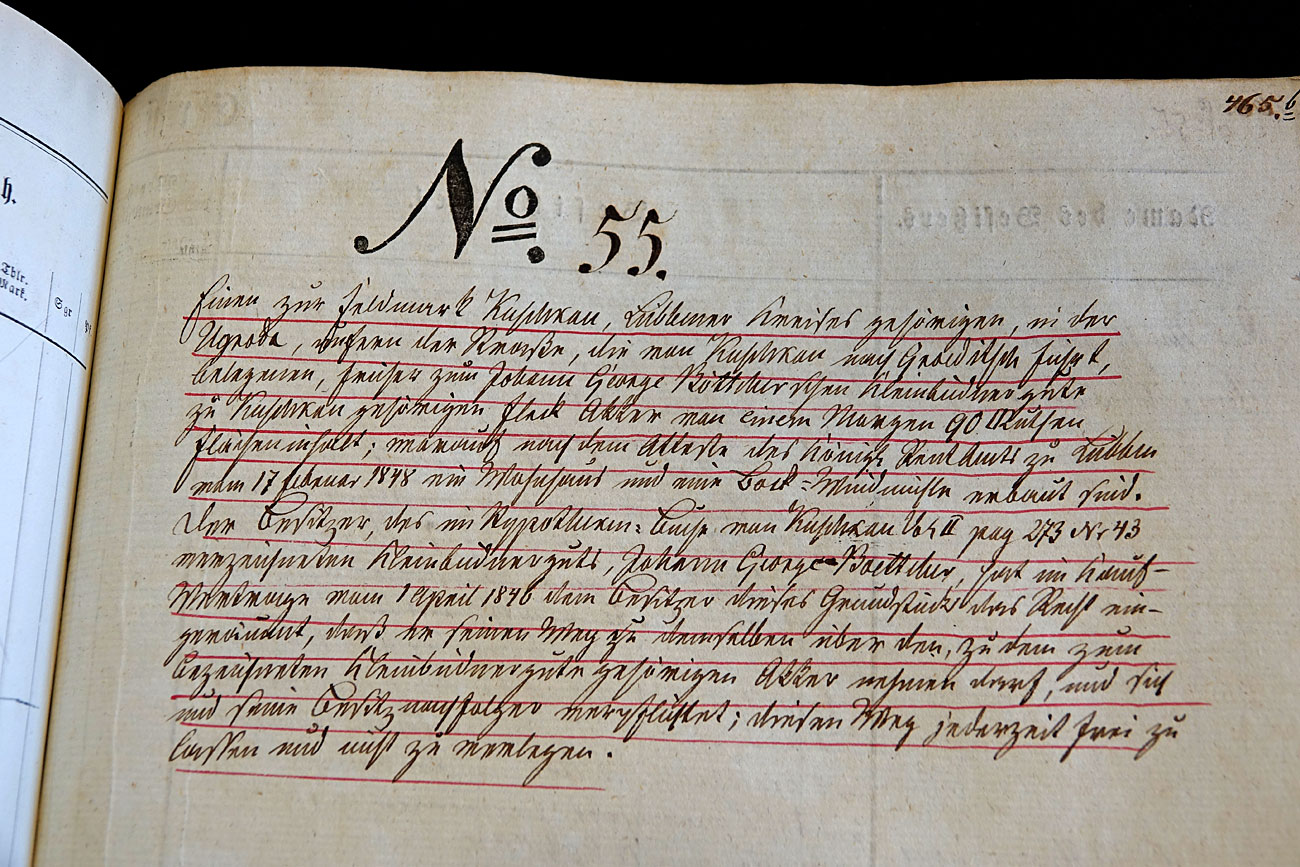 465.b
h.
Thlr.
Mark.
Sgr
Name des Besitzers.
No. 55.
Einen zur Feldmark Kuschkow, Lübbener Kreises gehörigen, in der
Ugroda, unfern der Straße, die von Kuschkow nach Groeditsch führt,
belegenen, früher zum Johann George Böttcherschen Kleinbüdnergute
zu Kuschkow gehörigen Fleck Akker von einem Morgen 90 □Ruthen
Flächeninhalt; worauf nach dem Atteste des Königl. Rentamts zu Lübben
vom 17 Februar 1848 ein Wohnhaus und eine Bock=Windmühle erbaut sind.
Der Besitzer, des im Hypotheken=Buche von Kuschkow Vol II pag 273 Nr 43
verzeichneten Kleinbüdnerguts, Johann George Boettcher, hat im Kauf-
Vertrage vom 1 April 1846 dem Besitzer dieses Grundstücks das Recht ein-
geräumt, daß er seinen Weg zu demselben über den, zu dem zum
bezeichneten Kleinbüdnergute gehörigen Akker nehmen darf, und sich
und seine Besitznachfolger verpflichtet; diesen Weg jederzeit frei zu
lassen und nicht zu verlegen.